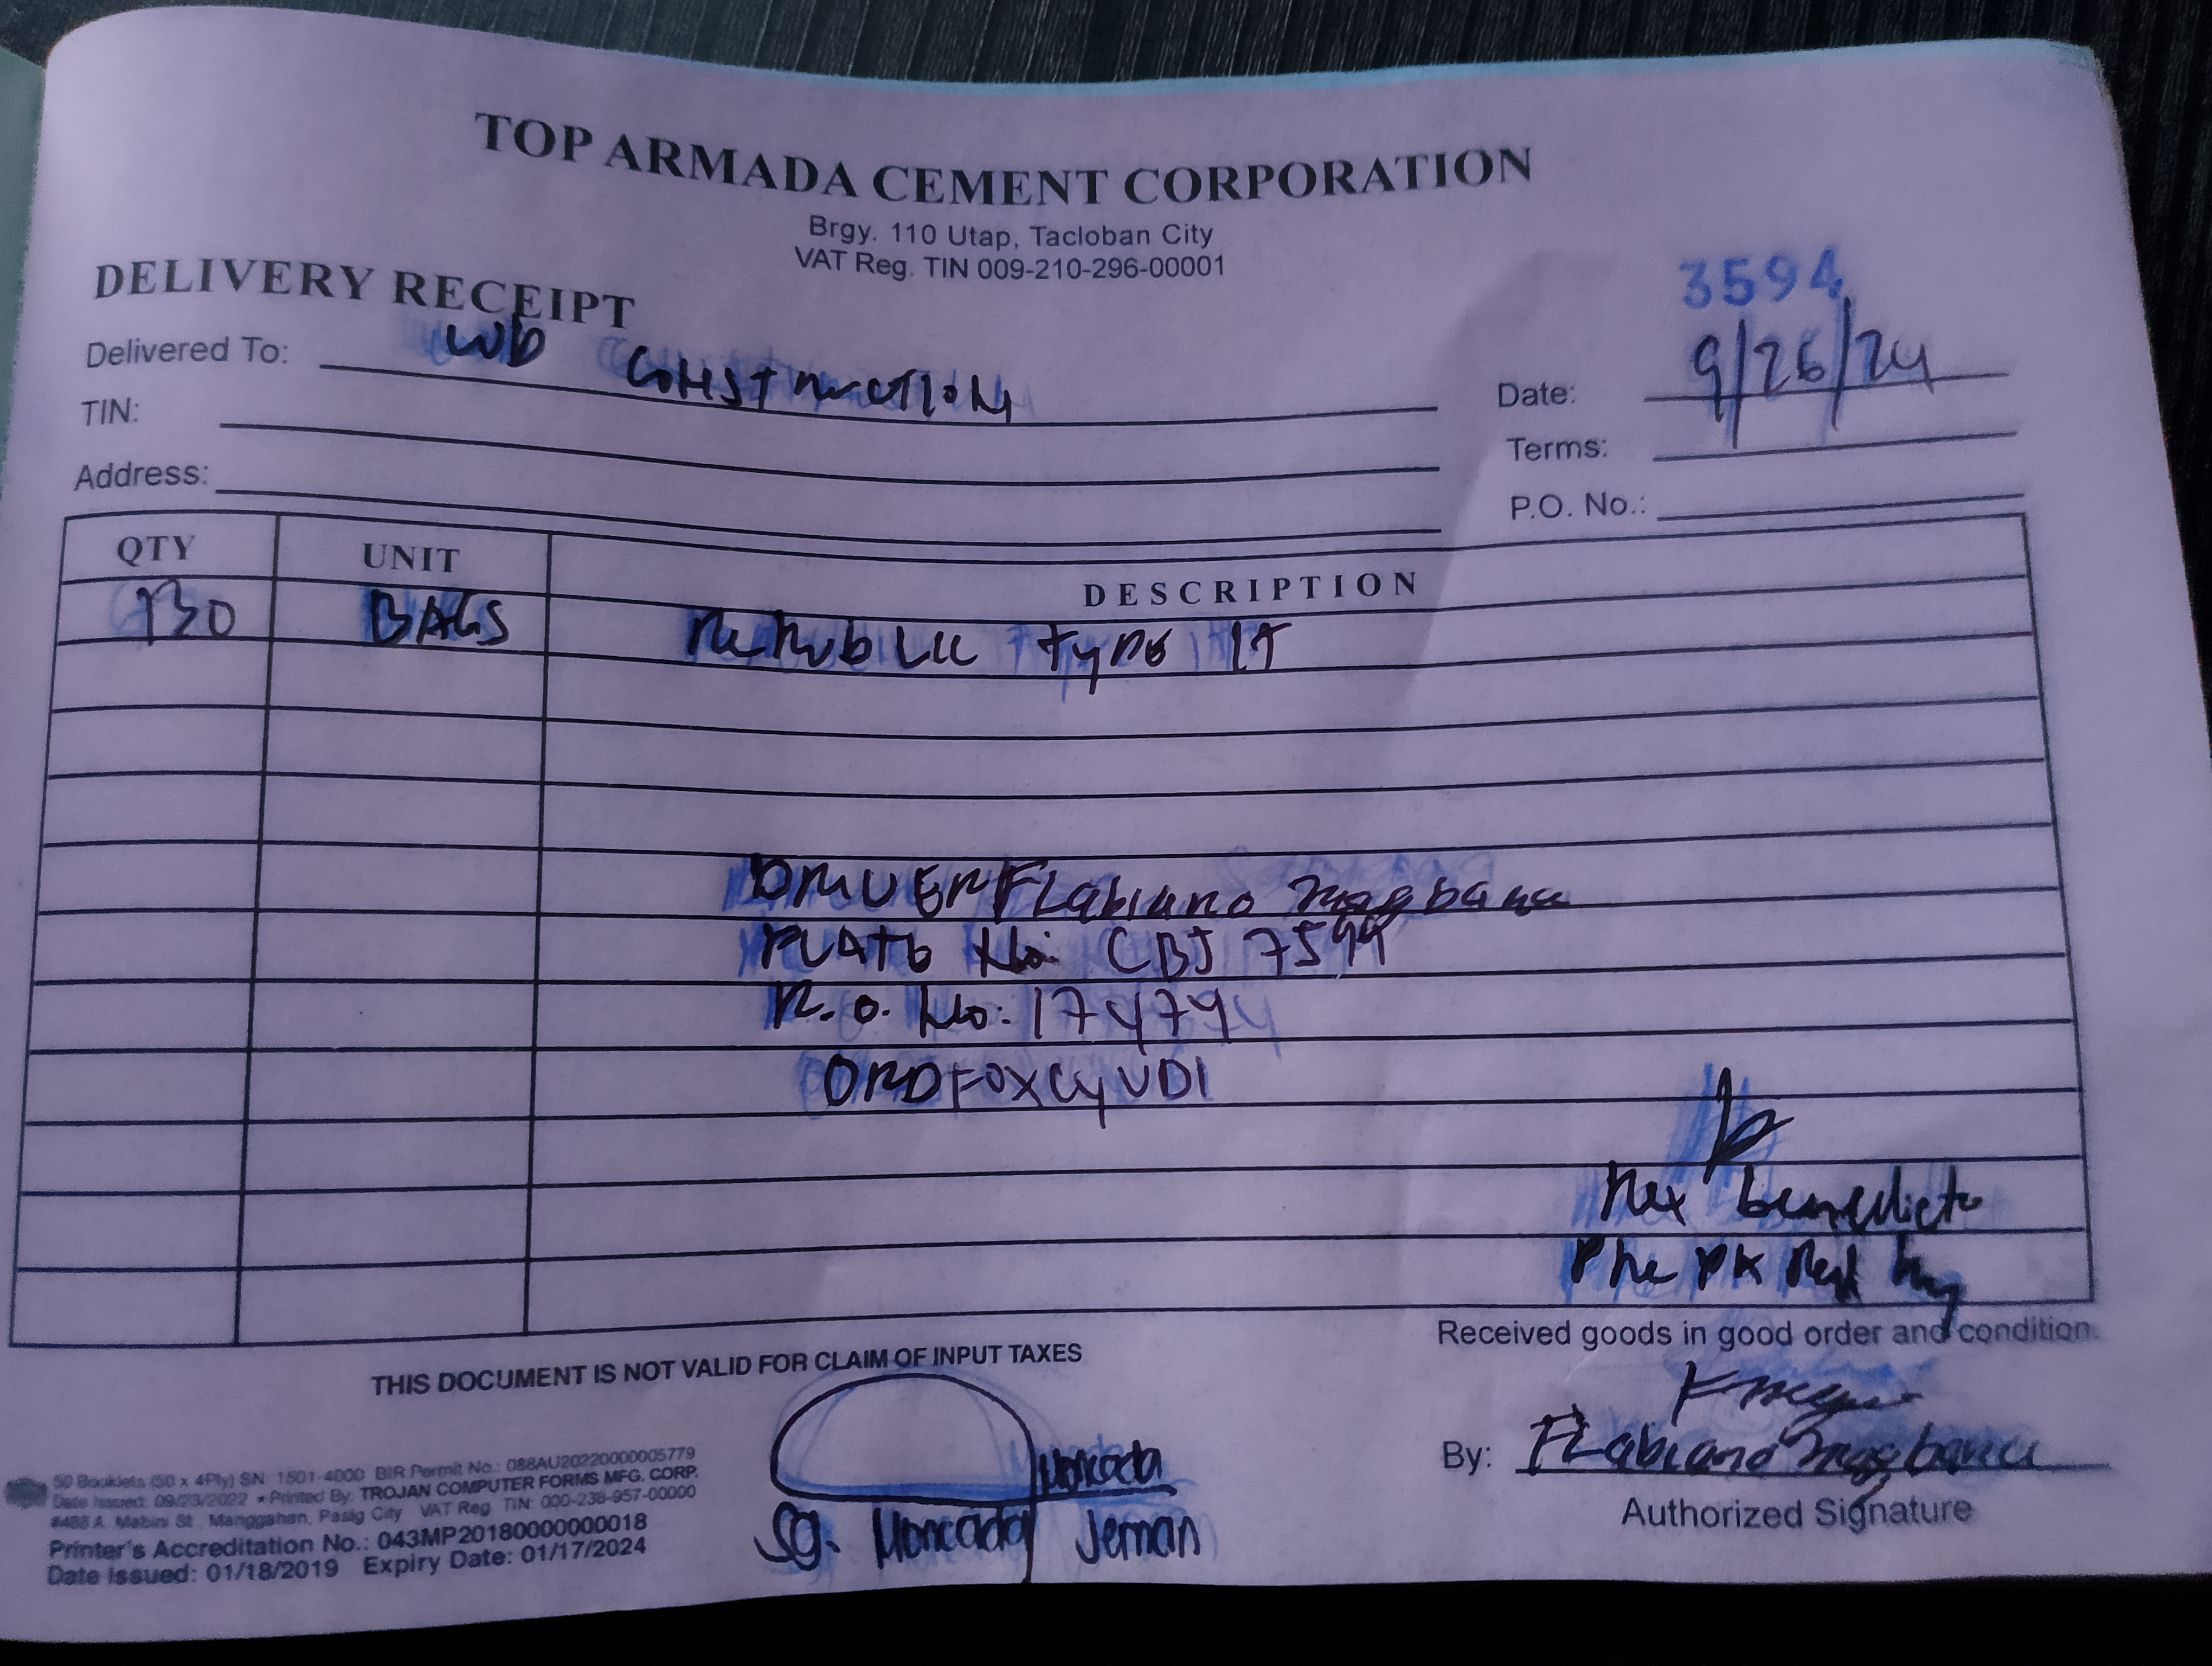 TOP ARMADA CEMENT CORPORATION
Brgy. 110 Utap, Tacloban City
VAT Reg. TIN 009-210-296-00001
3594
DELIVERY RECEIPT
Delivered To: WB CONSTRUCTION
Date: 9/26/24
TIN:
Terms:
Address:
P.O. No.:
QTY UNIT DESCRIPTION
730 BAGS REPUBLIC TYPE 1T
DRIVER Flabiano Magbanu
PLATE No: CBJ 7599
R.O. No: 174794
ORDFOXCYUD1
Rex benedicto
THIS DOCUMENT IS NOT VALID FOR CLAIM OF INPUT TAXES
Received goods in good order and condition.
By: Flabiano Magbanu
Authorized Signature
Moncada
Sg. Moncada Jeman
50 Booklets (50 x 4Ply) SN: 1501-4000 BIR Permit No.: 088AU20220000005779
Date Issued: 09/23/2022 * Printed By: TROJAN COMPUTER FORMS MFG. CORP.
#488 A. Mabini St., Manggahan, Pasig City VAT Reg. TIN: 000-238-957-00000
Printer's Accreditation No.: 043MP20180000000018
Date Issued: 01/18/2019 Expiry Date: 01/17/2024